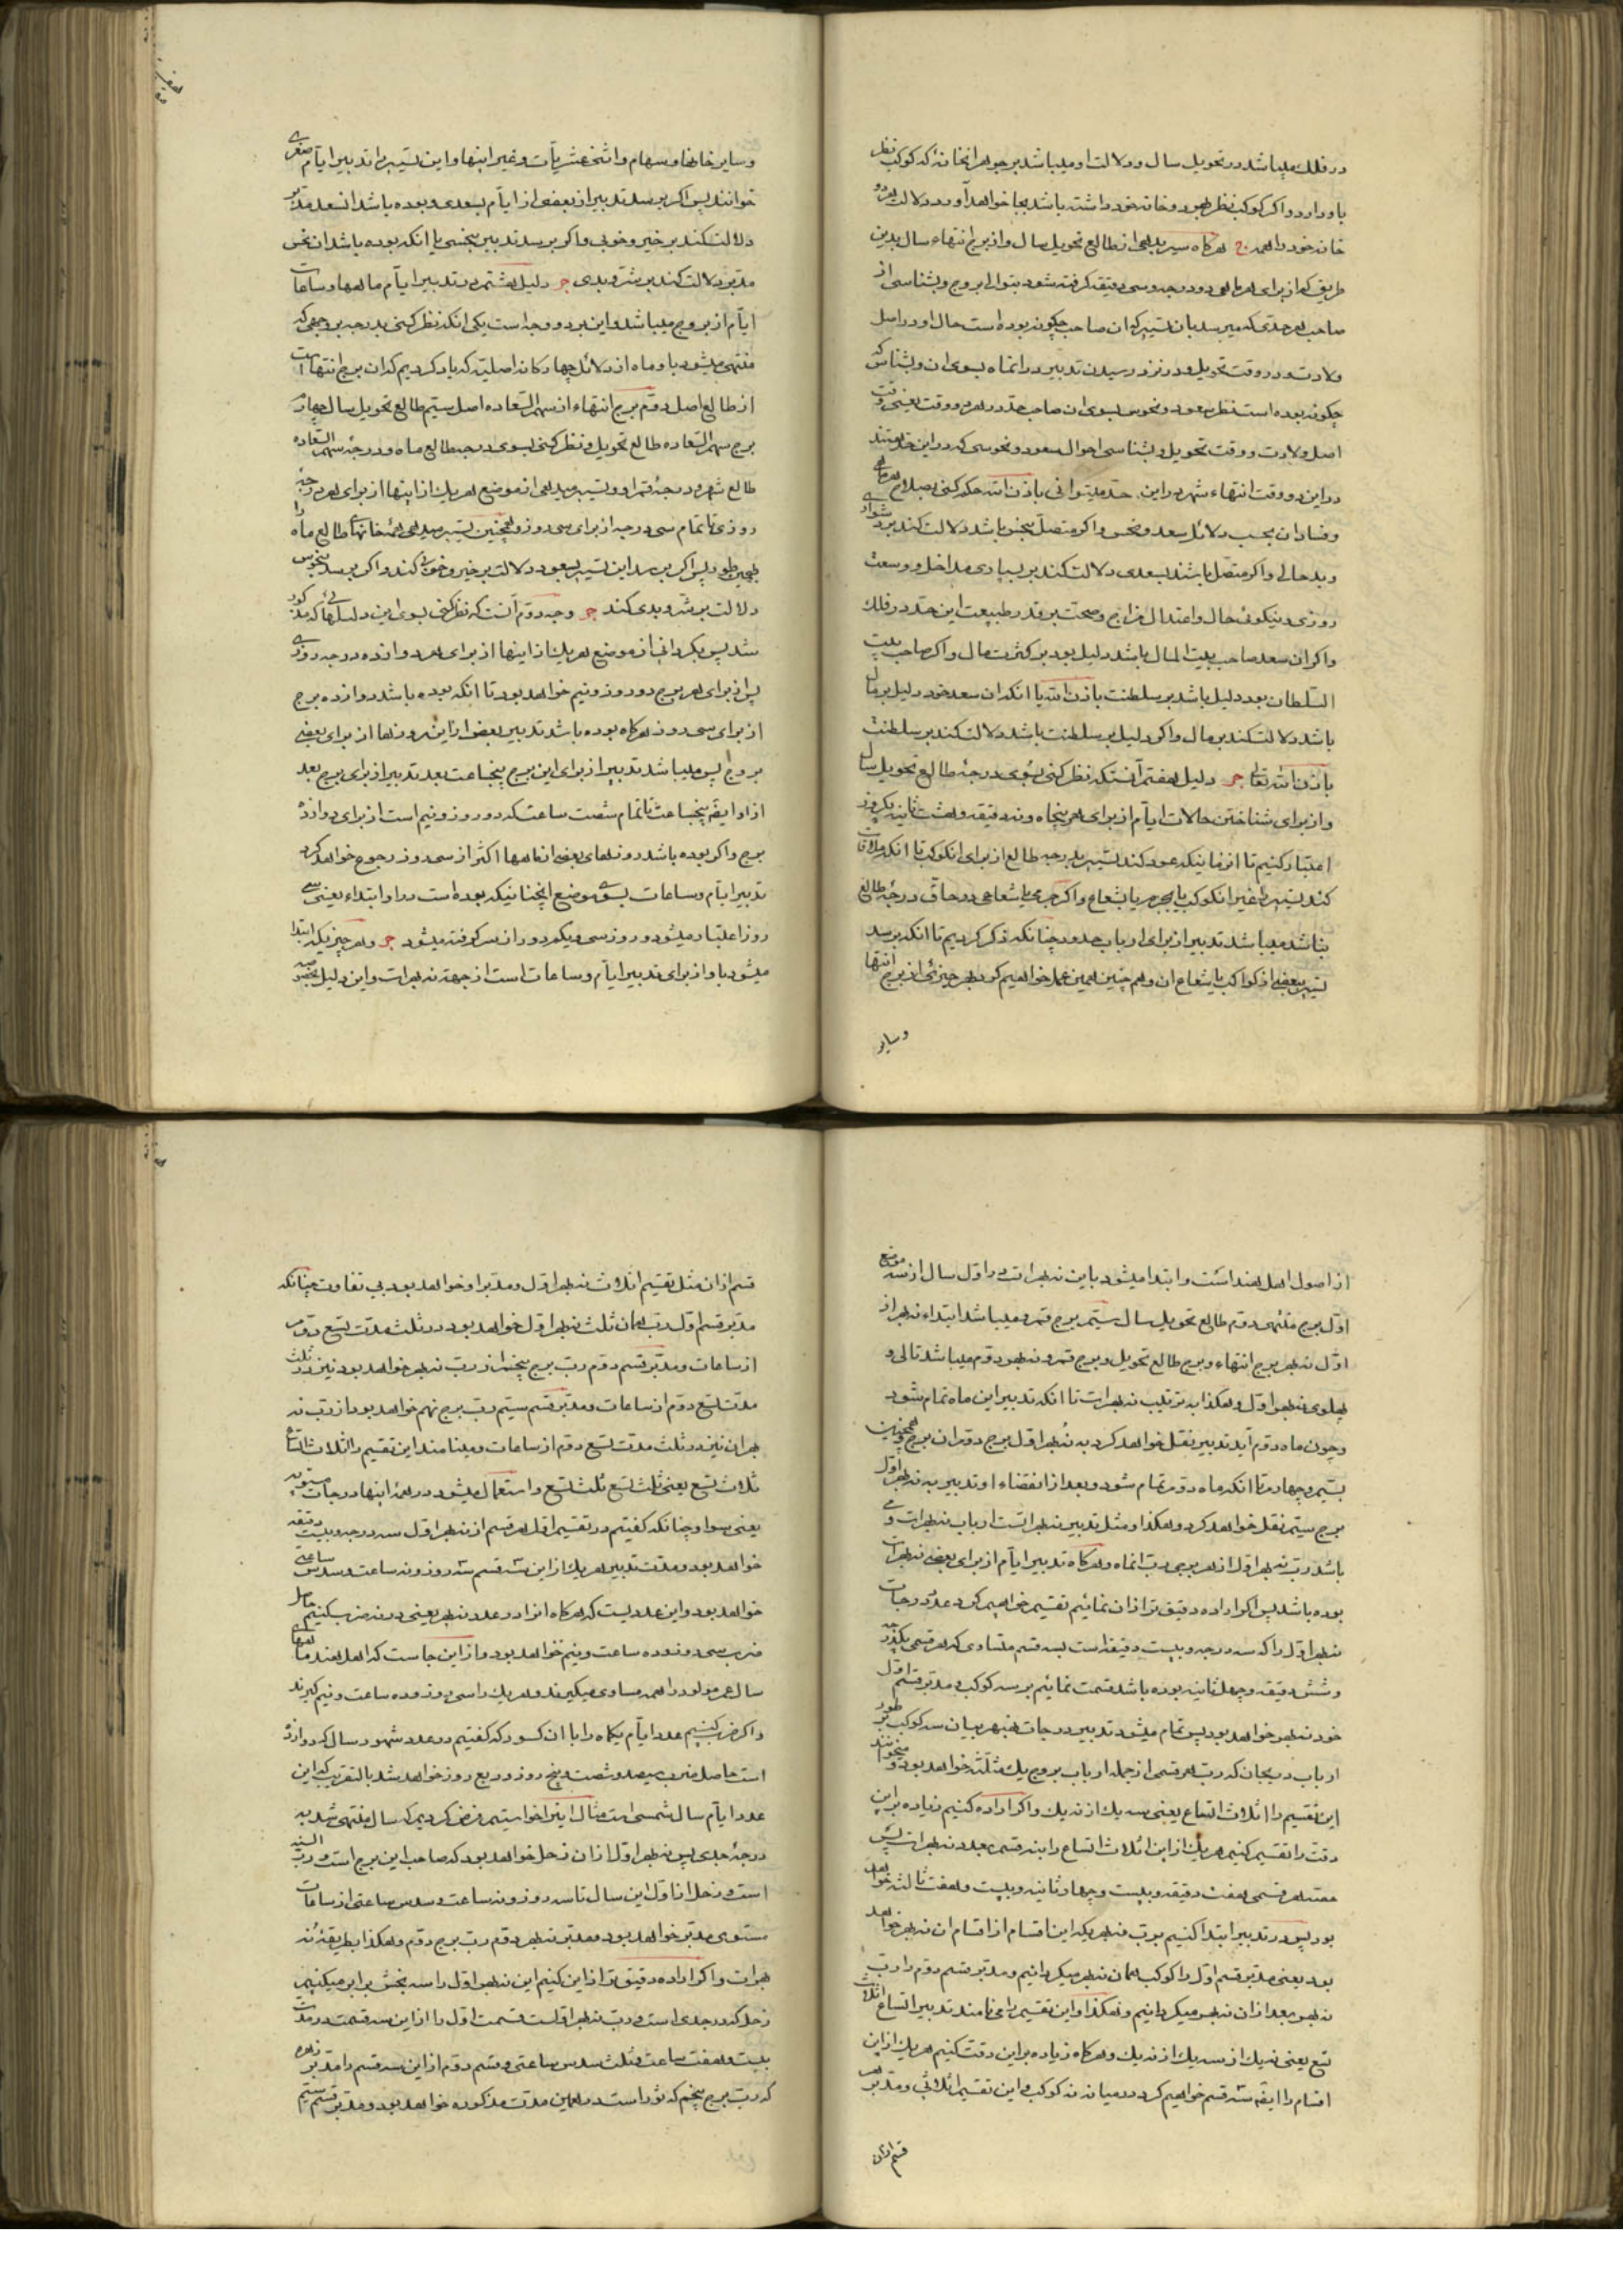 در فلك میباشد در تحویل سال و دلالت او میباشد بر جوهر انخانهٔ که کوکب نظر
باو دارد و اکر کوکب نظر بهر دو خانه خود داشته باشد بجا خواهد آورد دلالت هر دو
خانه خود را همه ج هرکاه سیر بدهی از طالع تحویل سال و از برج انتهاء سال بدین
طریق که از برای هر ماهی دو درجه وسی دقیقه کرفته شود بتوالی بروج و بشناسی از
صاحب هر حدی که میرسد بان تسییر که ان صاحب چکونه بوده است حال او در اصل
ولادت و در وقت تحویل و در نزد رسیدن تدبیر در انماه بسوی ان و بشناس که
چکونه بوده است نظر سعود و نحوس بسوی ان صاحب حد در هر دو وقت یعنی وقت
اصل ولادت و وقت تحویل و بشناسی احوال سعود و نحوسی که در این حد هستند
در این دو وقت انتهاء شهر در این حد میتوانی باذن الله حکم کنی بصلاح هر ماهی
و فساد ان بحسب دلائل سعد و نحس و اکر متصل بنحس باشد دلالت کند بر دشواری
و بد حالی و اکر متصل باشد بسعدی دلالت کند بر بسیاری مداخل و وسعت
روزی و نیکوئی حال و اعتدال مزاج و صحت بر قدر طبیعت این حد در فلك
و اکر ان سعد صاحب بیت المال باشد دلیل بود بر کثرت مال و اکر صاحب بیت
السلطان بود دلیل باشد بر سلطنت باذن الله یا انکه ان سعد خود دلیل بر مال
باشد دلالت کند بر مال و اکر دلیل بر سلطنت باشد دلالت کند بر سلطنت
باذن الله تعالی ج دلیل هفتم آنستکه نظر کنی بسوی درجهٔ طالع تحویل سال
و از برای شناختن حالات ایام از برای هر پنجاه و نه دقیقه و هشت ثانیه یکروز
اعتبار کنیم تا ازمانیکه عود کند تسییر بدرجه طالع از برای انکوکب تا انکه ملاقات
کند تسییر را غیر انکوکب بجرم یا بشعاع و اکر جرمی یا شعاعی در حاق درجهٔ طالع
نباشد میباشد تدبیر از برای ارباب حدود چنانکه ذکر کردیم تا انکه برسد
تسییر ببعضی از کواکب یا شعاع ان و هم چنین همین عمل خواهیم کرد بهر چیزی از برج انتها
وسایر
وسایر خانها و سهام و اثنی عشریات و غیر اینها و این تسییر را تدبیر ایام صغری
خوانند پس اکر برسد تدبیر از بعضی از ایام بسعدی و بوده باشد ان سعد مدبر
دلالت کند بر خیر و خوبی و اکر برسد تدبیر بنحسی یا انکه بوده باشد ان نحس
مدبر دلالت کند بر شر و بدی ج دلیل هشتم در تدبیر ایام ماهها و ساعات
ایام از بروج میباشد و این بر دو وجه است یکی انکه نظر کنی بدرجه برجی که
منتهی میشود باو ماه از دلائل چهار کانه اصلیه که یاد کردیم که ان برج انتها است
از طالع اصل دوم برج انتهاء از سهم السعاده اصل سیم طالع تحویل سال چهارم
برج سهم السعاده طالع تحویل و نظر کنی بسوی درجه طالع ماه و درجهٔ سهم السعاده
طالع شهر و درجهٔ قمر او و تسییر میدهی از موضع هر یك از اینها از برای هر درجهٔ
روزی تا تمام سی درجه از برای سی روز و همچنین تسییر میدهی همهٔ خانهای طالع ماه را
بهمین طور پس اکر برسد این تسییر بسعود دلالت بر خیر و خوبی کند و اکر برسد بنحوس
دلالت بر شر و بدی کند ج وجه دوم آنست که نظر کنی بسوی این دلیلهائی که مذکور
شد پس بکردانی از موضع هر یك از اینها از برای هر دوازده درجه روزی
پس از برای هر برج دو روز و نیم خواهد بود تا انکه بوده باشد دوازده برج
از برای سی روز هرکاه بوده باشد تدبیر بعضی از این روزها از برای بعضی
بروج پس میباشد تدبیر از برای این برج پنجساعت بعد تدبیر از برای برج بعد
از او ایضا پنجساعت تا تمام شصت ساعت که دو روز و نیم است از برای دوازده
برج و اکر بوده باشد روزهای بعضی از ماهها اکثر از سی روز رجوع خواهد کرد
تدبیر ایام و ساعات بسوی موضع انچنانیکه بوده است در او ابتداء یعنی سی
روز اعتبار میشود و روز سی و یکم دور از سر کرفته میشود ج و هر چیزیکه ابتدا
میشود باو از برای تدبیر ایام و ساعات است از جهة نه بهرات و این دلیل مخصوصه
از اصول اهل هند است و ابتدا میشود باین نه بهرات در اول سال از سه موضع
اول برج منتهی دوم طالع تحویل سال سیم برج قمر و میباشد ابتداء نه بهر از
اول نه بهر برج انتهاء و برج طالع تحویل و برج قمر و نه بهر دوم میباشد تالی و
پهلوی نه بهر اول و هکذا به ترتیب نه بهرات تا انکه تدبیر این ماه تمام شود
و چون ماه دوم آید تدبیر نقل خواهد کرد به نه بهر اول برج دوم ان برج و همچنین
بسیم و چهارم تا انکه ماه دوم تمام شود و بعد از انقضاء او تدبیر به نه بهر اول
برج سیم نقل خواهد کرد و هکذا و مثل تدبیر نه بهراتست ارباب نه بهرات و می
باشد رب نه بهر اول از هر برجی رب انماه و هرکاه تدبیر ایام از برای بعضی نه بهرات
بوده باشد پس اکر اراده دقیق تر از ان نمائیم تقسیم خواهیم کرد عدد درجات
نه بهر اول را که سه درجه و بیست دقیقه است بسه قسم متساوی که هر قسمی یکدرجه
و شش دقیقه و چهل ثانیه بوده باشد قسمت نمائیم بر سه کوکب و مدبر قسم اول
خود نه بهر خواهد بود پس تمام میشود تدبیر درجات نه بهر میان سه کوکب بر طور
ارباب دریجان که رب هر قسمی از جمله ارباب بروج یك مثلثه خواهد بود و منجم نند
این تقسیم را اثلاث اتساع یعنی سه یك از نه یك و اکر اراده کنیم زیاده بر این
دقت را تقسیم کنیم هر یك از این اثلاث اتساع را به نه قسم بعدد نه بهرات پس
حصه هر قسمی هفت دقیقه و بیست و چهار ثانیه و بیست و هفت ثالثه خواهد
بود پس در تدبیر ابتدا کنیم برب نه بهریکه این اقسام از اقسام ان نه بهر خواهد
بود یعنی مدبر قسم اول را کوکب همان نه بهر میکردانیم و مدبر قسم دوم را رب
نه بهر بعد از ان نه بهر میکردانیم و هکذا و این تقسیم را می نامند تدبیر اتساع اثلاث
تسع یعنی نه یك از سه یك از نه یك و هرکاه زیاده بر این دقت کنیم هر یك از این
اقسام را ایضا سه قسم خواهیم کرد در میانه نه کوکب و این تقسیم اثلاثی و مدبر هر
قسم ازان
قسم از ان مثل تقسیم اثلاث نه بهر اول و مدبر او خواهد بود بی تفاوت چنانکه
مدبر قسم اول رب همان ثلث نه بهر اول خواهد بود در ثلث مدت تسع دوم
از ساعات و مدبر قسم دوم رب برج پنجم از رب نه بهر خواهد بود نیز در ثلث
مدت تسع دوم از ساعات و مدبر قسم سیم رب برج نهم خواهد بود از رب نه
بهر ان نیز در ثلث مدت تسع دوم از ساعات و مینامند این تقسیم را اثلاث اتساع
ثلاث تسع یعنی ثلث تسع ثلث تسع و استعمال میشود در همهٔ اینها درجات مستویه
یعنی سوا و چنانکه کفتیم در تقسیم اول هر قسم از نه بهر اول سه درجه و بیست دقیقه
خواهد بود و مدت تدبیر هر یك از این سه قسم سه روز و نه ساعت و سدس ساعتی
خواهد بود و این عددیست که هرکاه انرا در عدد نه بهر یعنی در نه ضرب کنیم حاصل
ضرب سی روز و ده ساعت و نیم خواهد بود و از این جا است که اهل هند ماههای
سال عمر مولود را همه مساوی میکیرند و هر یك را سی روز و ده ساعت و نیم کیرند
و اکر ضرب کنیم عدد ایام یکماه را با ان کسور که کفتیم در عدد شهور سال که دوازده
است حاصل ضرب سیصد و شصت و پنج روز و ربع روز خواهد شد بالتقریب که این
عدد ایام سال شمسی است مثال اینرا خواستیم فرض کردیم که سال منتهی شد به
درجهٔ جدی پس نه بهر اول از ان زحل خواهد بود که صاحب این برج است و رب السنه
است و زحل از اول این سال تا سه روز و نه ساعت و سدس ساعتی از ساعات
مستوی مدبر خواهد بود و مدبر نه بهر دوم رب برج دوم و هکذا بطریقهٔ نه
بهرات و اکر اراده دقیق تر از این کنیم این نه بهر اول را سه بخش برابر میکنیم
زحل که در جدی است و رب نه بهر اولست قسمت اول را از این سه قسمت در مدت
بیست و هفت ساعت و ثلث سدس ساعتی و قسم دوم از این سه قسم را مدبر زهره
که رب برج پنجم که ثور است در همین مدت مذکوره خواهد بود و مدبر قسم سیم